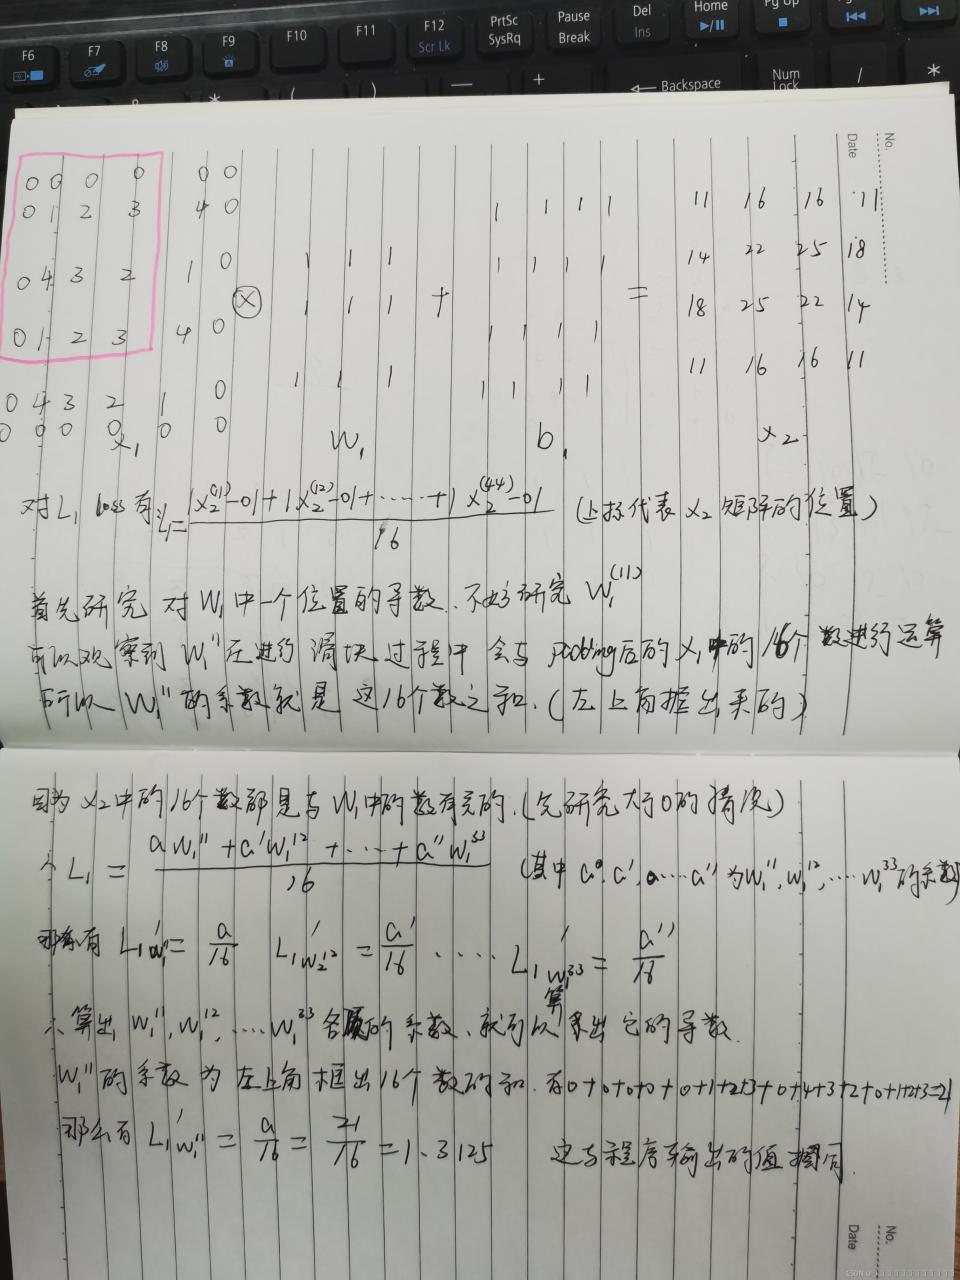 F6 F7 F8 F9 F10 F11 F12 Scr Lk PrtSc SysRq Pause Break Del Ins Home Pg Up
← Backspace Num Lock / *
No.
Date
0 0 0 0 0 0
0 1 2 3 4 0
0 4 3 2 1 0
0 1 2 3 4 0
0 4 3 2 1 0
0 0 0 0 0 0
x₁
⊗
1 1 1
1 1 1
1 1 1
W₁
+
1 1 1 1
1 1 1 1
1 1 1 1
1 1 1 1
b₁
=
11 16 16 11
14 22 25 18
18 25 22 14
11 16 16 11
x₂
对L₁ loss有: L₁ = (|x₂^(11)-0|+|x₂^(12)-0|+……+|x₂^(44)-0|)/16 (上标代表x₂矩阵的位置)
首先研究对W₁中一个位置的导数.不妨研究W₁^(11)
可以观察到W₁^11在进行滑块过程中会与padding后的x₁中的16个数进行运算
所以W₁^11的系数就是这16个数之和.(左上角框出来的)
因为x₂中的16个数都是与W₁中的数有关的.(先研究大于0的情况)
∴L₁ = (aw₁^11+a'w₁^12+…+a''w₁^33)/16 (其中a,a',a…a''为w₁^11,w₁^12,…w₁^33的系数)
那么有 L₁'w₁^11 = a/16 L₁'w₂^12 = a'/16 …… L₁'w₁^33 = a''/16
∴算出w₁^11,w₁^12,…w₁^33各项的系数,就可以算出它的导数.
W₁^11的系数为左上角框出16个数的和.有0+0+0+0+0+1+2+3+0+4+3+2+0+1+2+3=21
那么有 L₁'w₁^11 = a/16 = 21/16 = 1.3125 这与程序输出的值相同.
No.
Date